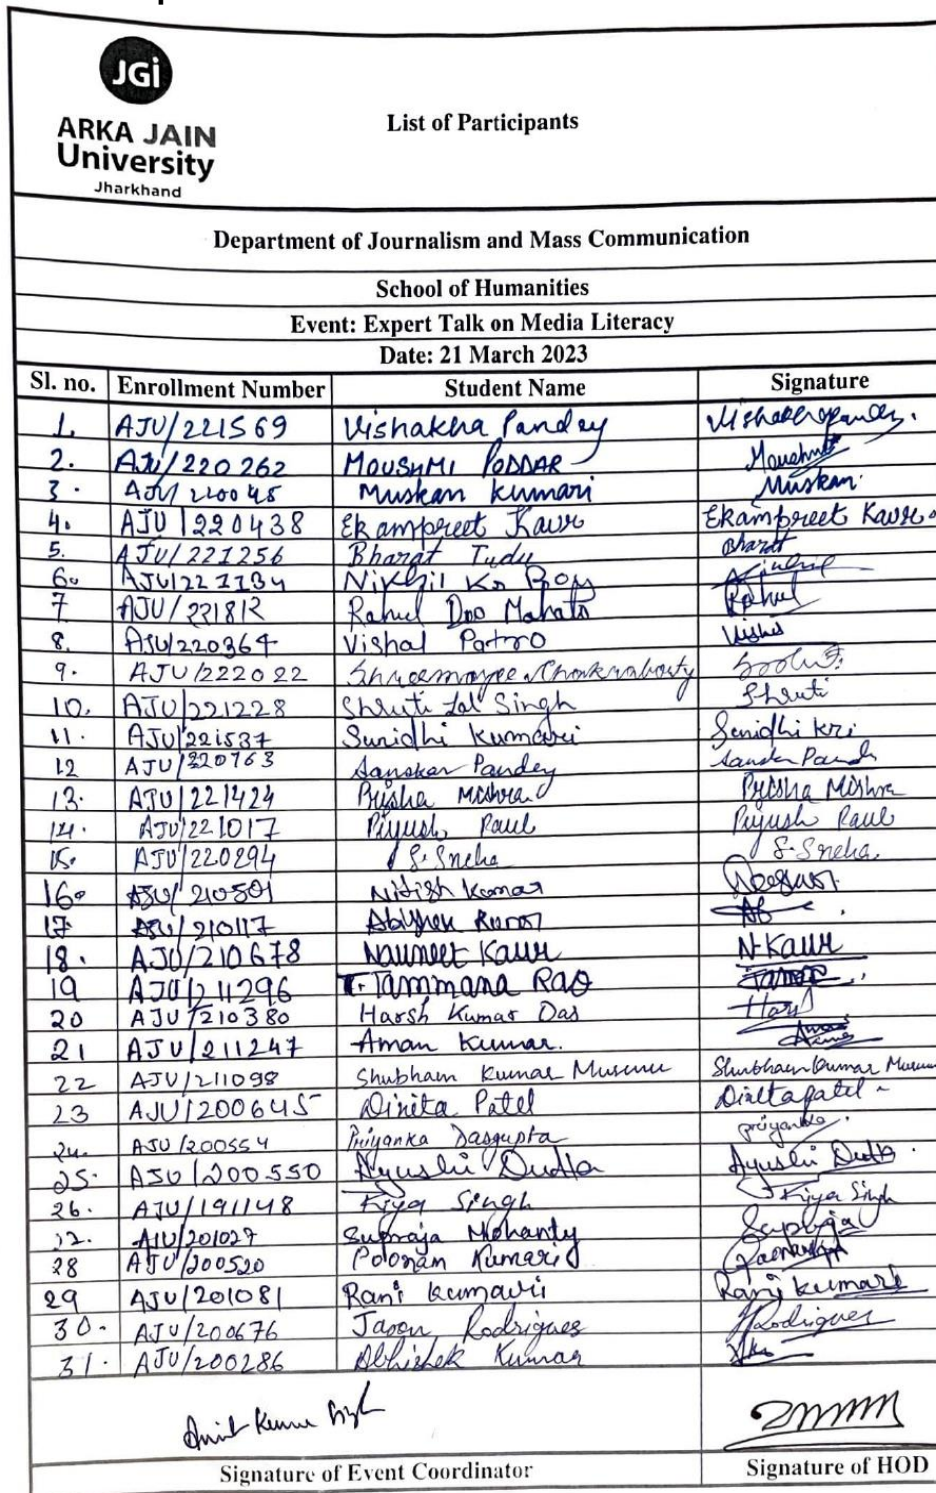 JGi
ARKA JAIN
University
Jharkhand
List of Participants
Department of Journalism and Mass Communication
School of Humanities
Event: Expert Talk on Media Literacy
Date: 21 March 2023
Sl. no. Enrollment Number Student Name Signature
1. AJU/221569 Vishakha Pandey
2. AJU/220262 MOUSHMI PODDAR
3. AJU/220045 Muskan Kumari Muskan
4. AJU/220438 Ekampreet Kaur Ekampreet Kaur
5. AJU/221256 Bharat Tudu Bharat
6. AJU/221134 Nikhil Kr Roy
7 AJU/221812 Rahul Deo Mahato Rahul
8. AJU/220364 Vishal Patro
9. AJU/222022 Shreemoyee Chakraborty
10. AJU/221228 Shruti Lal Singh Shruti
11. AJU/221537 Sunidhi Kumari Sunidhi Kri
12 AJU/220763 Sanskar Pandey
13. AJU/221424 Prisha Mishra Prisha Mishra
14. AJU/221017 Piyush Paul Piyush Paul
15. AJU/220294 S. Sneha S. Sneha.
16. AJU/210501 Nitish Kumar
17 AJU/210117
18. AJU/210678 Navneet Kaur N Kaur
19 AJU/211296 T. Tammana Rao
20 AJU/210380 Harsh Kumar Das
21 AJU/211247 Aman Kumar.
22 AJU/211098 Shubham Kumar Murmu Shubham Kumar Murmu
23 AJU/200645 Dinita Patel
24. AJU/200554 Priyanka Dasgupta priyanka
25. AJU/200550 Ayushi Dutta Ayushi Dutta
26. AJU/191148 Riya Singh Riya Singh
AJU/201027 Supraja Mohanty Supraja
28 AJU/200520 Poonam Kumari
29 AJU/201081 Rani Kumari Rani Kumari
30. AJU/200676 Jason Rodrigues JRodrigues
31. AJU/200286 Abhishek Kumar
Signature of Event Coordinator Signature of HOD